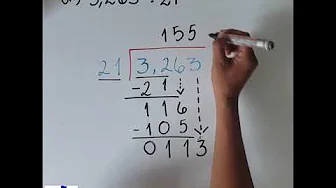 3,263 ÷ 21
155
21 3,263
-21
116
-105
0113